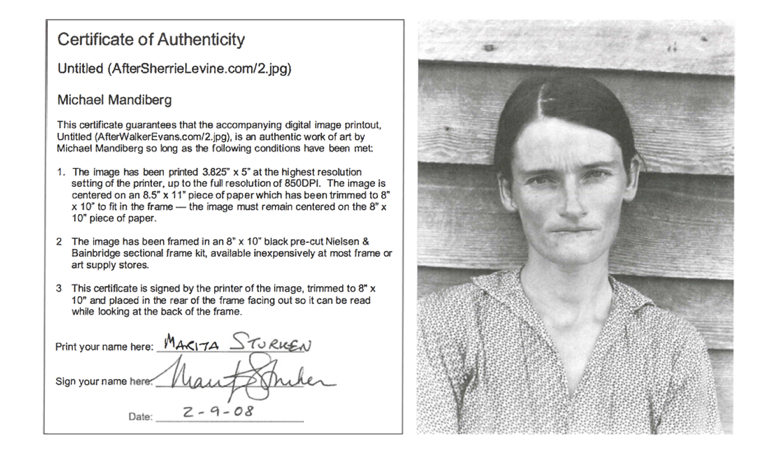 Certificate of Authenticity
Untitled (AfterSherrieLevine.com/2.jpg)
Michael Mandiberg
This certificate guarantees that the accompanying digital image printout,
Untitled (AfterWalkerEvans.com/2.jpg), is an authentic work of art by
Michael Mandiberg so long as the following conditions have been met:
1. The image has been printed 3.825" x 5" at the highest resolution
setting of the printer, up to the full resolution of 850DPI. The image is
centered on an 8.5" x 11" piece of paper which has been trimmed to 8"
x 10" to fit in the frame — the image must remain centered on the 8" x
10" piece of paper.
2 The image has been framed in an 8" x 10" black pre-cut Nielsen &
Bainbridge sectional frame kit, available inexpensively at most frame or
art supply stores.
3 This certificate is signed by the printer of the image, trimmed to 8" x
10" and placed in the rear of the frame facing out so it can be read
while looking at the back of the frame.
Print your name here: MARITA STURKEN
Sign your name here: Marita Sturken
Date: 2-9-08